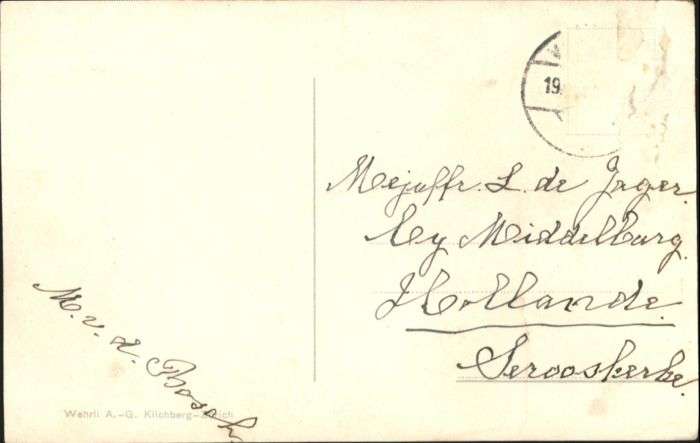 19
Mejuffr. L. de Jager.
by Middelburg.
Hollande.
Serooskerke
M. v. d. Bosch
Wehrli A.-G. Kilchberg-Zürich